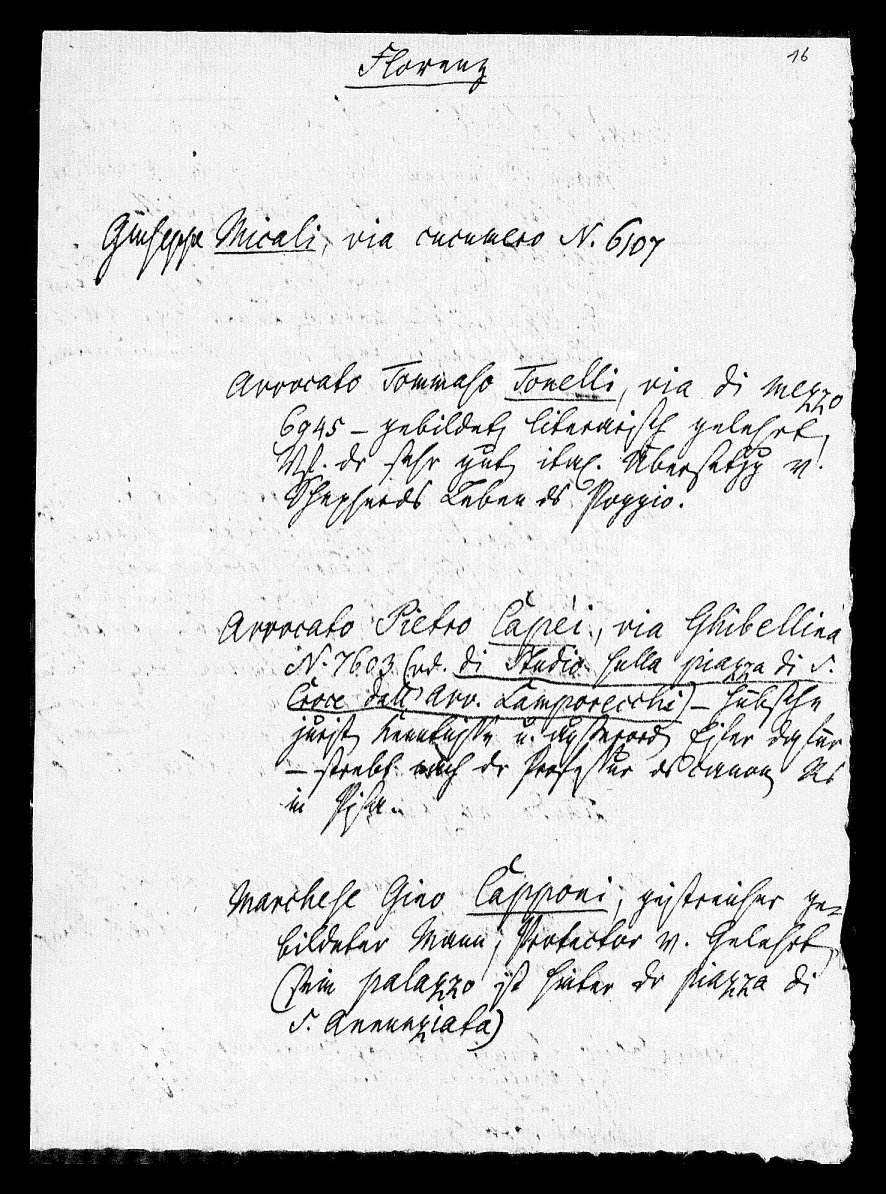 16
Florenz
Giuseppe Micali, via cucumero N. 6107
Avvocato Tommaso Tonelli, via di mezzo
6945 – gebildet, literarisch gelehrt,
Vf. der sehr guten ital. Übersetzg v.
Shepherds Leben des Poggio.
Avvocato Pietro Capei, via Ghibellina
N. 7603 (od. di Studio sulla piazza di S.
Croce dall' Avv. Lamporecchi) – hübsche
jurist. Kenntnisse u. ausserord. Eifer dafür
– strebt nach der Professur des canon. Rs
in Pisa.
Marchese Gino Capponi, geistreicher ge-
bildeter Mann, Protector v. Gelehrten
(sein palazzo ist hinter der piazza di
S. Annunziata)